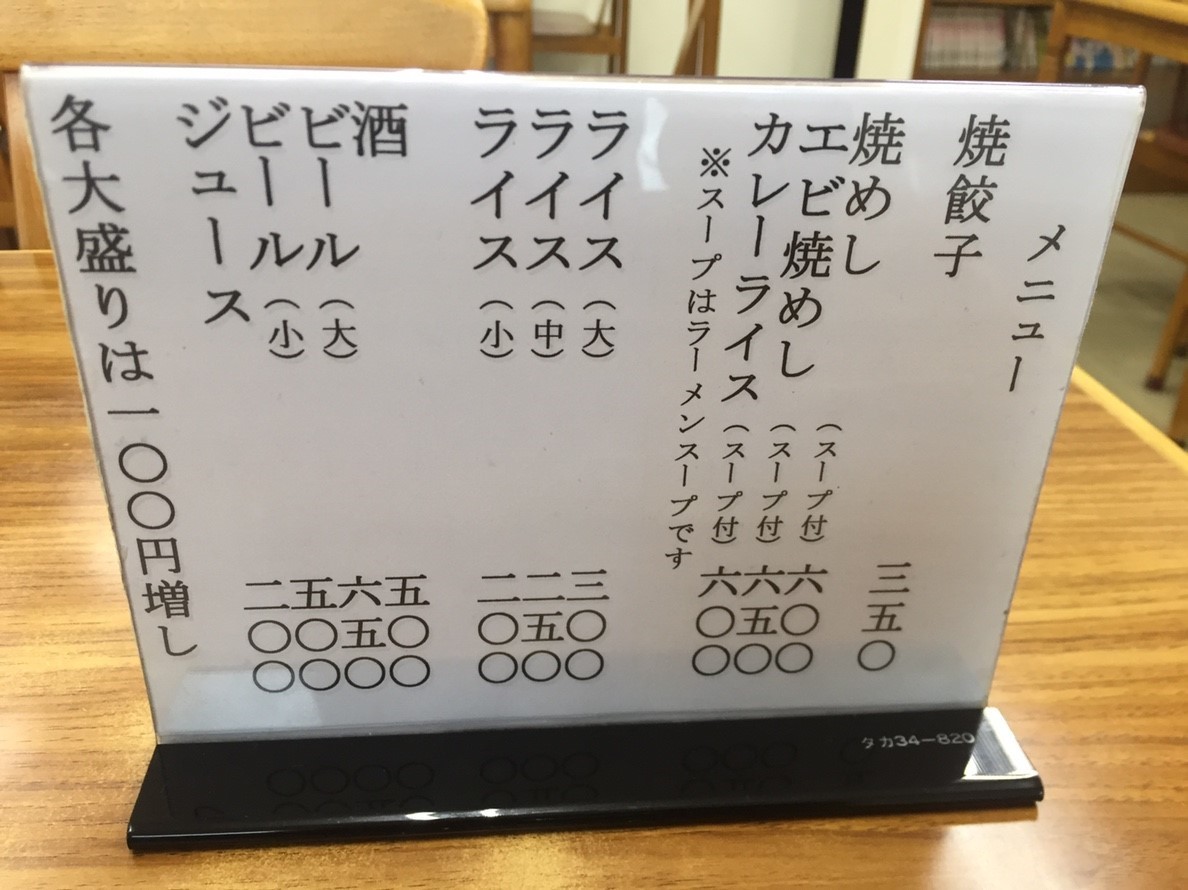 メニュー
焼餃子 三五〇
焼めし (スープ付) 六〇〇
エビ焼めし (スープ付) 六五〇
カレーライス (スープ付) 六〇〇
※スープはラーメンスープです
ライス (大) 三〇〇
ライス (中) 二五〇
ライス (小) 二〇〇
酒 五〇〇
ビール (大) 六五〇
ビール (小) 五〇〇
ジュース 二〇〇
各大盛りは一〇〇円増し
タカ34-820